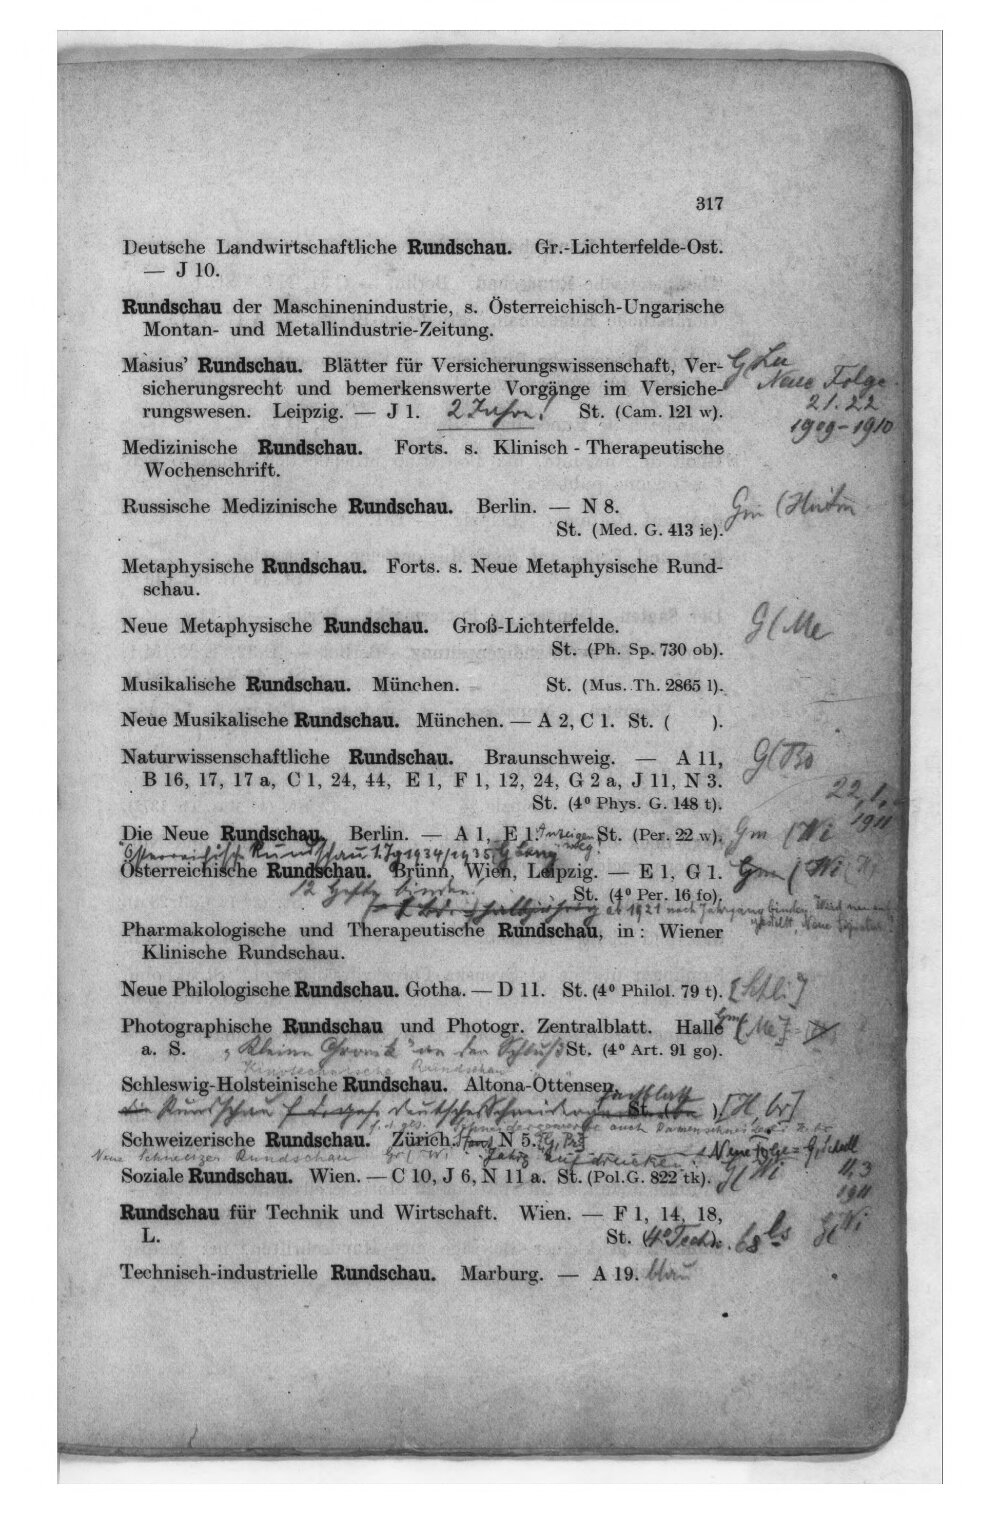 317
Deutsche Landwirtschaftliche Rundschau. Gr.-Lichterfelde-Ost.
— J 10.
Rundschau der Maschinenindustrie, s. Österreichisch-Ungarische
Montan- und Metallindustrie-Zeitung.
Masius' Rundschau. Blätter für Versicherungswissenschaft, Ver-
sicherungsrecht und bemerkenswerte Vorgänge im Versiche-
rungswesen. Leipzig. — J 1. 2 Jahre! St. (Cam. 121 w).
Neue Folge.
21. 22
1909-1910
Medizinische Rundschau. Forts. s. Klinisch - Therapeutische
Wochenschrift.
Russische Medizinische Rundschau. Berlin. — N 8.
St. (Med. G. 413 ie). Gm
Metaphysische Rundschau. Forts. s. Neue Metaphysische Rund-
schau.
Neue Metaphysische Rundschau. Groß-Lichterfelde. G (Me
St. (Ph. Sp. 730 ob).
Musikalische Rundschau. München. St. (Mus. Th. 2865 l).
Neue Musikalische Rundschau. München. — A 2, C 1. St. ( ).
Naturwissenschaftliche Rundschau. Braunschweig. — A 11, G (Bo
B 16, 17, 17 a, C 1, 24, 44, E 1, F 1, 12, 24, G 2 a, J 11, N 3.
St. (4⁰ Phys. G. 148 t).
22.1.
1911
Die Neue Rundschau. Berlin. — A 1, E 1. Anzeigen weg! St. (Per. 22 w). Gm (Ni
Österreichische Rundschau 1. Jg 1934/1935
Österreichische Rundschau. Brünn, Wien, Leipzig. — E 1, G 1. Gm (Ni
12 Hefte binden! St. (4⁰ Per. 16 fo).
ab 1921 nach Jahrgang binden
Pharmakologische und Therapeutische Rundschau, in: Wiener
Klinische Rundschau.
Neue Philologische Rundschau. Gotha. — D 11. St. (4⁰ Philol. 79 t). [Schli]
Photographische Rundschau und Photogr. Zentralblatt. Halle Gm (Me]
a. S. „Kleine Chronik" an den Schluß St. (4⁰ Art. 91 go).
Kinotechnische Rundschau
Schleswig-Holsteinische Rundschau. Altona-Ottensen.
St. ( )
Schweizerische Rundschau. Zürich. N 5. Neue Folge = G, Schll
Neue Schweizer Rundschau
Soziale Rundschau. Wien. — C 10, J 6, N 11 a. St. (Pol. G. 822 tk). G (Ni
11.3
1911
Rundschau für Technik und Wirtschaft. Wien. — F 1, 14, 18,
L. St. (4⁰ Techn.
Technisch-industrielle Rundschau. Marburg. — A 19. blau